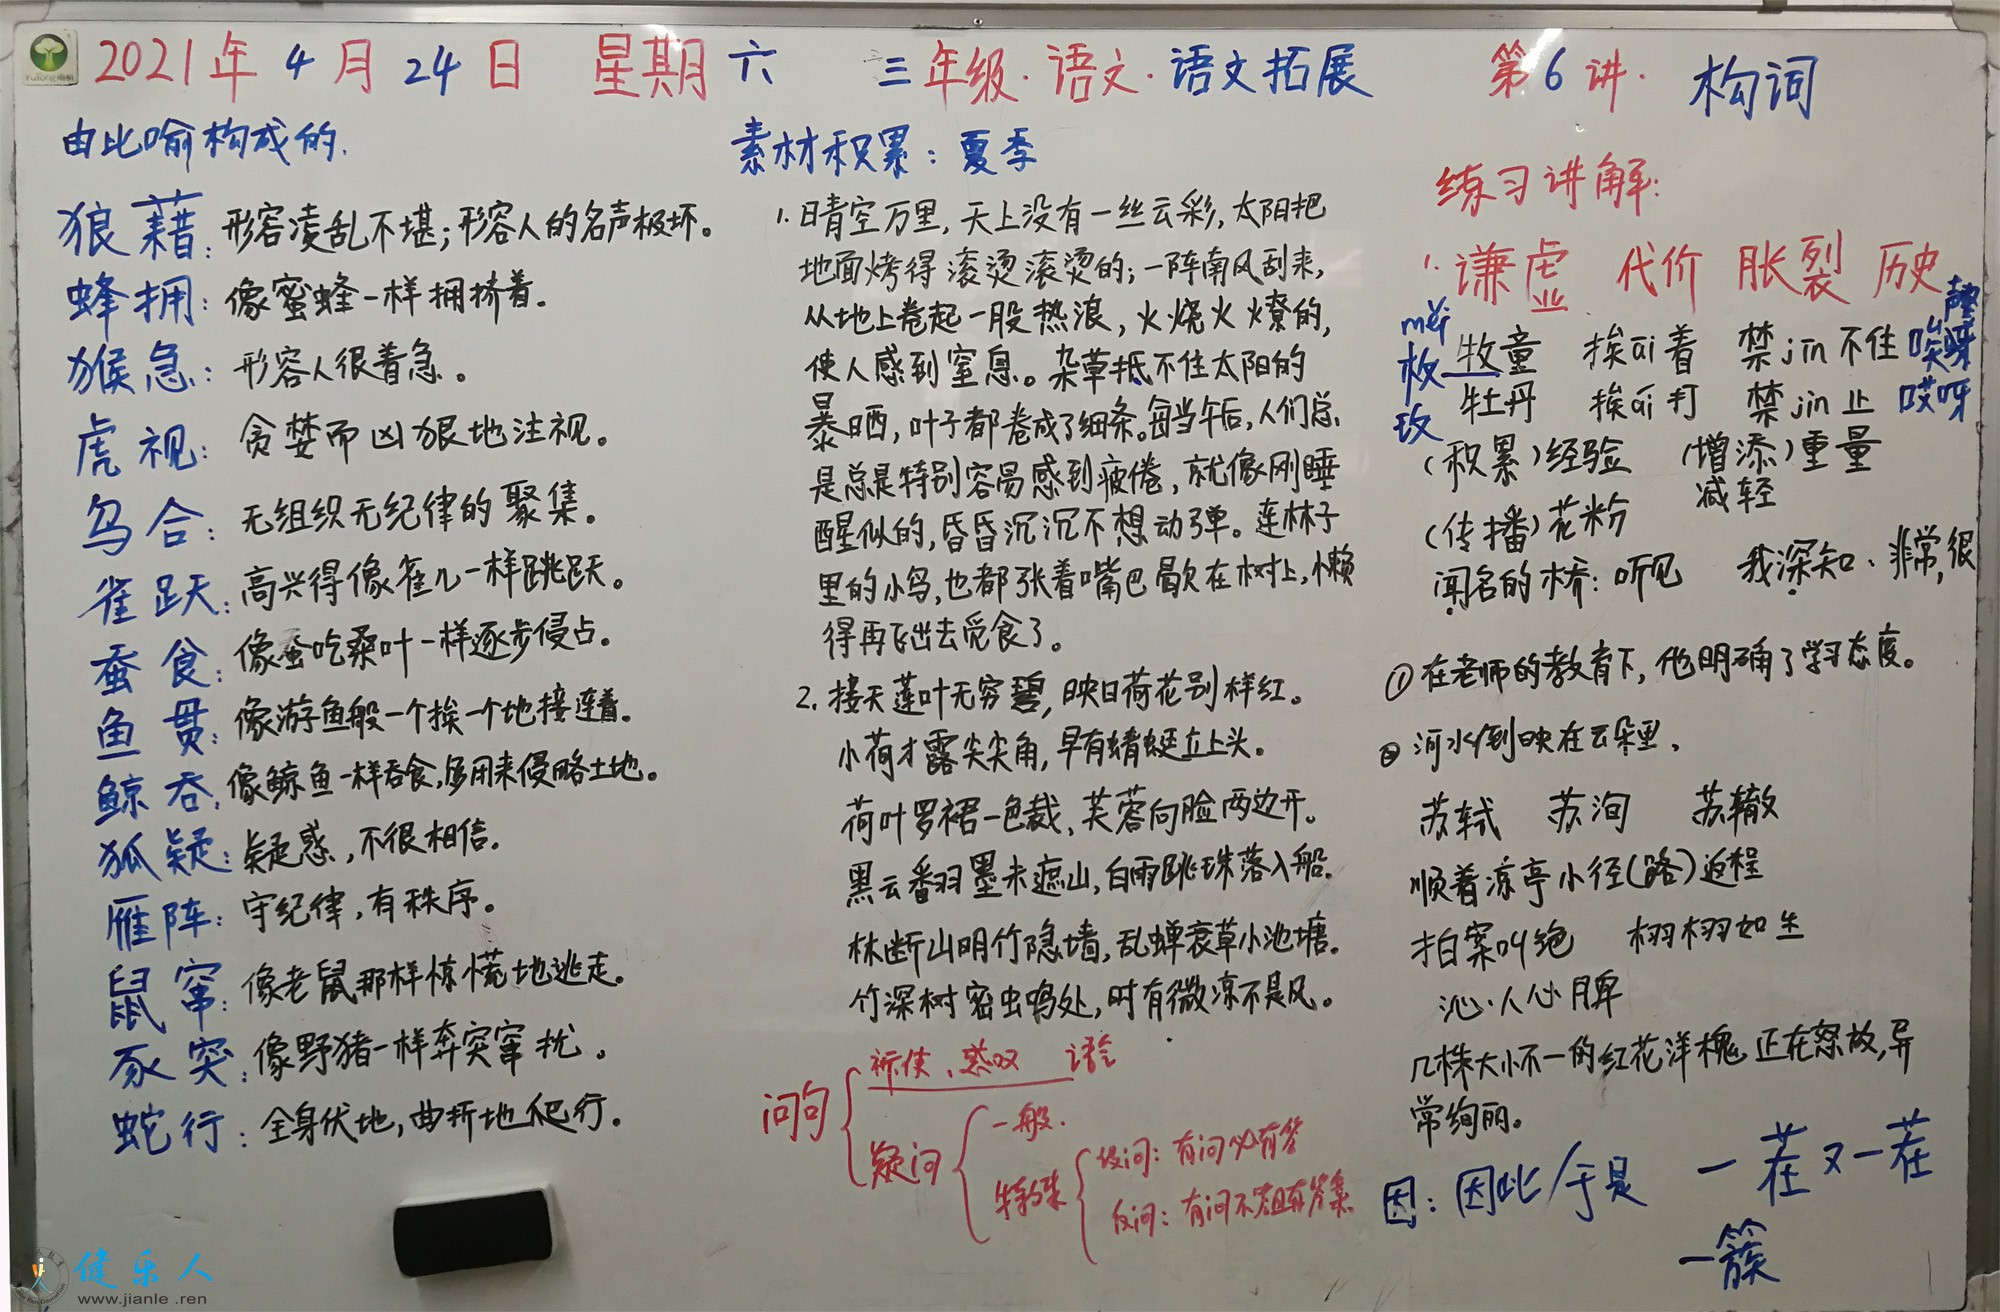 2021年4月24日 星期六 三年级·语文·语文拓展 第6讲· 构词
由比喻构成的.
狼藉：形容凌乱不堪；形容人的名声极坏。
蜂拥：像蜜蜂一样拥挤着.
猴急：形容人很着急。
虎视：贪婪而凶狠地注视。
乌合：无组织无纪律的聚集。
雀跃：高兴得像雀儿一样跳跃。
蚕食：像蚕吃桑叶一样逐步侵占。
鱼贯：像游鱼般一个挨一个地接连着.
鲸吞：像鲸鱼一样吞食,多用来侵略土地。
狐疑：疑惑,不很相信.
雁阵：守纪律,有秩序。
鼠窜：像老鼠那样惊慌地逃走。
豕突：像野猪一样奔突窜扰。
蛇行：全身伏地,曲折地爬行.
素材积累：夏季
1.晴空万里,天上没有一丝云彩,太阳把
地面烤得滚烫滚烫的；一阵南风刮来,
从地上卷起一股热浪,火烧火燎的,
使人感到窒息。杂草抵不住太阳的
暴晒,叶子都卷成了细条。每当午后,人们总
是总是特别容易感到疲倦,就像刚睡
醒似的,昏昏沉沉不想动弹。连林子
里的小鸟,也都张着嘴巴歇在树上,懒
得再飞出去觅食了。
2.接天莲叶无穷碧,映日荷花别样红。
小荷才露尖尖角,早有蜻蜓立上头。
荷叶罗裙一色裁,芙蓉向脸两边开。
黑云番羽墨未遮山,白雨跳珠落入船.
林断山明竹隐墙,乱蝉衰草小池塘。
竹深树密虫鸣处,时有微凉不是风。
问句
祈使、感叹 语气
疑问
一般.
特殊
设问：有问必有答
反问：有问不答
练习讲解：
1.谦虚 代价 胀裂 历史
méi
枚 牧童 挨āi着 禁jīn不住 唉呀
玫 牡丹 挨ái打 禁jìn止 哎呀
(积累)经验 (增添)重量
减轻
(传播)花粉
闻名的桥：听见 我深知、非常,很
①在老师的教育下,他明确了学习态度。
②河水倒映在云朵里.
苏轼 苏洵 苏辙
顺着凉亭小径(路)返程
拍案叫绝 栩栩如生
沁人心脾
几株大小不一的红花洋槐正在怒放,异
常绚丽。
因：因此/于是 一茬又一茬
一簇
健乐人
www.jianle.ren